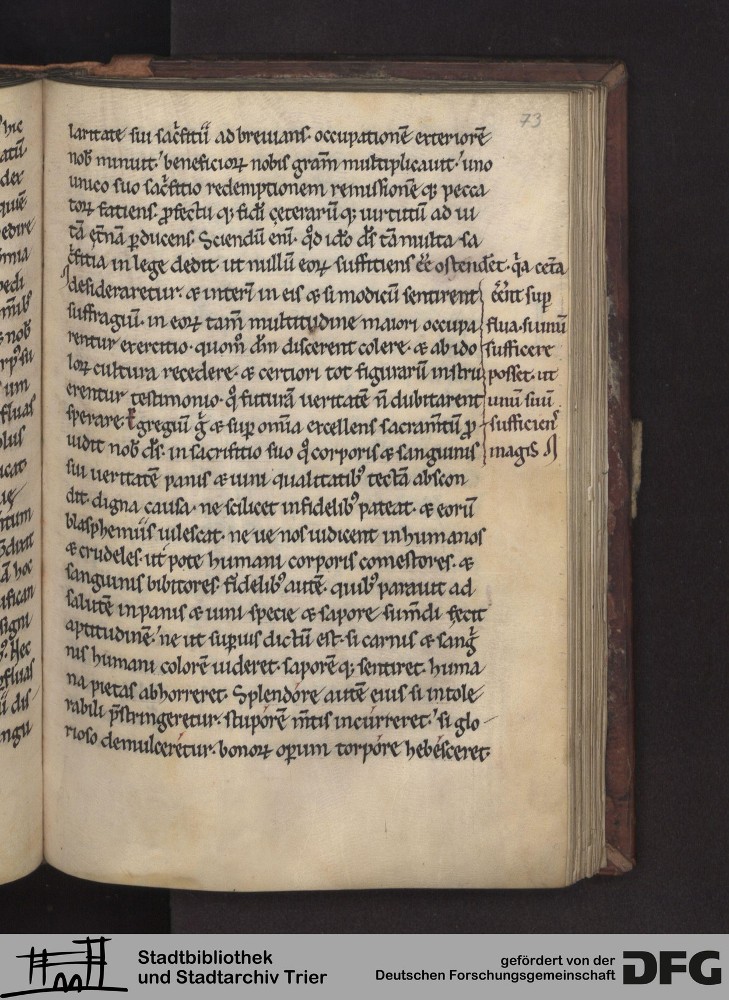 73
laritate sui sac̄fitii ad breuians. occupationē exteriorē
nob̄ minuit. beneficioꝝ nobis gr̄am multiplicauit. uno
unico suo sac̄fitio redemptionem remissionē q; pecca
toꝝ fatiens. ꝓfectū q; fidei ceterarū q; uirtutū ad ui
tā ęt̄nā ꝑducens. Sciendū eni. qd̄ ido d̄s tā multa sa
c̄fitia in lege dedit. ut nullū eoꝝ suffitiens ēē ostendēt. q̄a cet̄a
desideraretur. & interī in eis & si modicū sentirent
suffragiū. in eoꝝ tam̄ multitudine maiori occupa
rentur exercitio. quom̊ dm̄ discerent colere. & ab ido
loꝝ cultura recedere. & certiori tot figurarū instru
erentur testimonio. qd̄ futurā ueritatē n̄ dubitarent
sperare. Egregiū ḡ & sup om̄ia excellens sacram̄tū ꝓ
uidit nob̄ d̄s. in sacrifitio suo qd̄ corporis & sanguinis
sui ueritatē panis & uini qualitatib; tectā abscon
dit. digna causa. ne scilicet infidelib; pateat. & eorū
blasphemiis uilescat. ne ue nos iudicent inhumanos
& crudeles. ut pote humani corporis comestores. &
sanguinis bibitores. fidelib; autē. quib; parauit ad
salutē in panis & uini specie & sapore sum̄di fecit
aptitudinē. ne ut superius dictū est. si carnis & sanḡ
nis humani colorē uideret. saporē q; sentiret. huma
na pietas abhorreret. Splendore autē eius si intole
rabili p̄stringeretur. stuporē m̄tis incurreret. si glo
rioso demulceretur. bonoꝝ operum torpore hebesceret.
ēēnt sup
flua. si unū
sufficere
posset. ut
unū suū
sufficien
magis
Stadtbibliothek
und Stadtarchiv Trier
gefördert von der
Deutschen Forschungsgemeinschaft
DFG